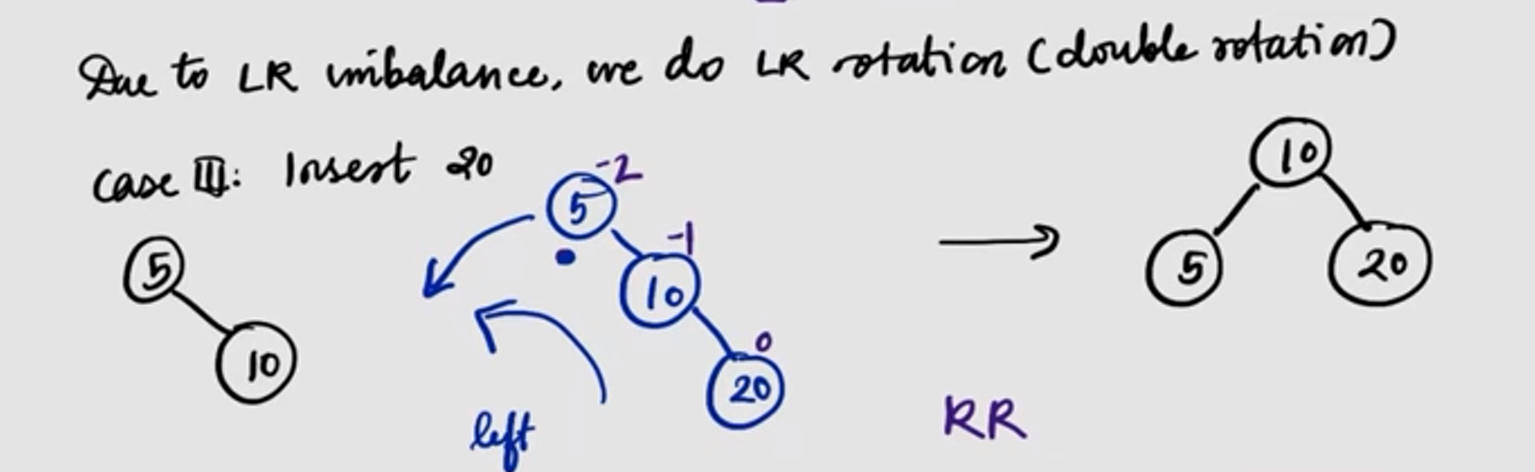 Due to LR imbalance, we do LR rotation (double rotation)
Case III: Insert 20
5
10
5 -2
10 -1
20 0
left
10
5 20
RR